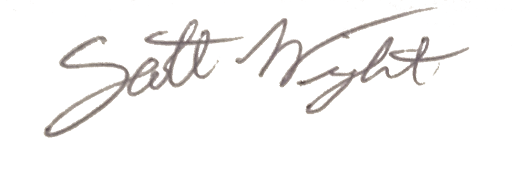 Scott Wight